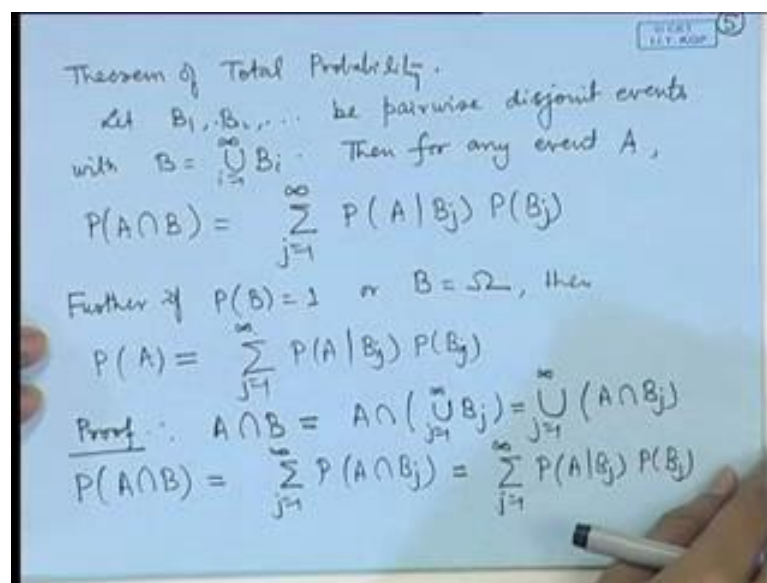 5
Theorem of Total Probability.
Let B₁, B₂, ... be pairwise disjoint events
with B = ∞⋃i=1 Bi . Then for any event A,
P(A∩B) = ∞∑j=1 P(A|Bj) P(Bj)
Further if P(B)=1 or B=Ω, then
P(A) = ∞∑j=1 P(A|Bj) P(Bj)
Proof : A∩B = A∩(∞⋃j=1 Bj) = ∞⋃j=1 (A∩Bj)
P(A∩B) = ∞∑j=1 P(A∩Bj) = ∞∑j=1 P(A|Bj) P(Bj)